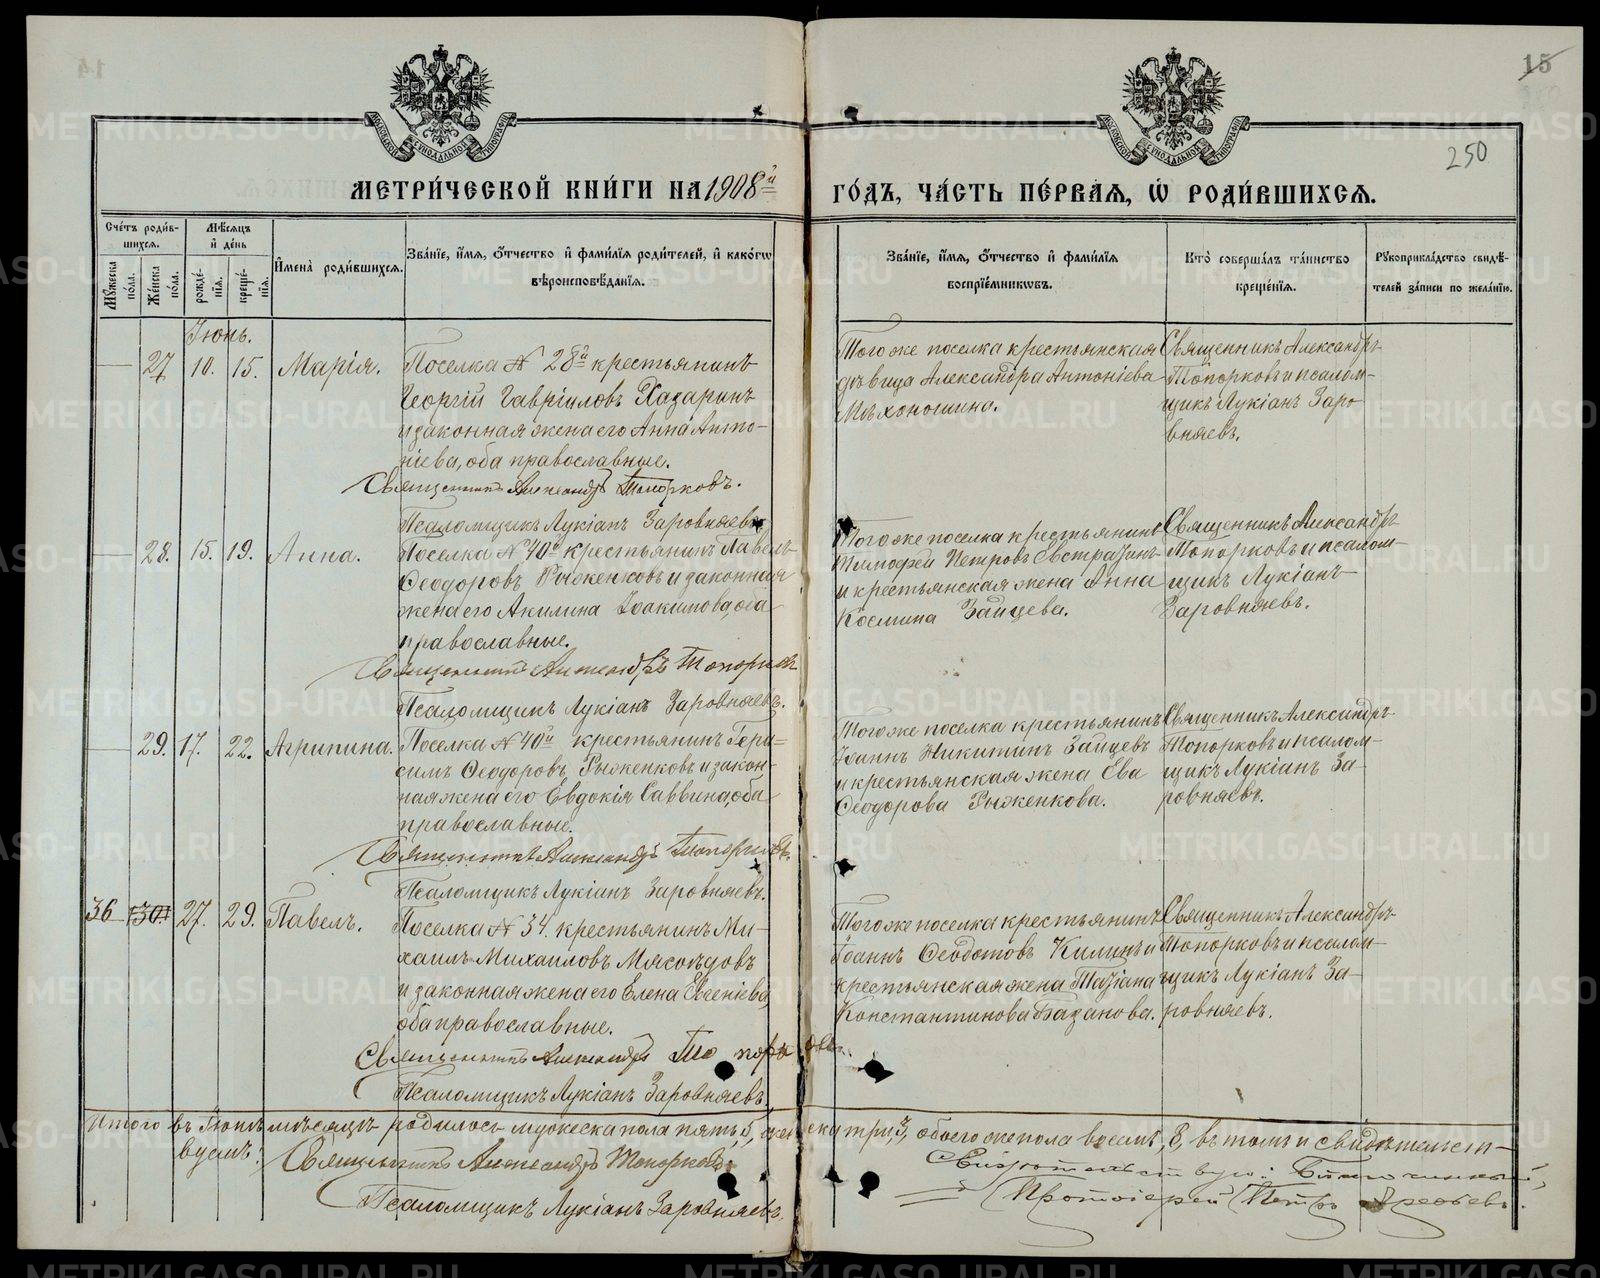 14
15
250
МЕТРИ́ЧЕСКОЙ КНИ́ГИ НА 1908й
ГО́ДЪ, ЧА́СТЬ ПЕ́РВАѦ, Ѡ҆ РОДИ́ВШИХСѦ.
Сче́тъ роди́в-
шихсѧ.
Мѣ́сѧцъ
и҆ де́нь
Мꙋ́жеска по́ла.
Же́нска по́ла.
рожде́-
нїѧ.
креще́-
нїѧ.
И҆мена̀ роди́вшихсѧ.
Зва́нїе, и҆́мѧ, ѻ҆́тчество и҆ фами́лїѧ роди́телей, и҆ како́гѡ
вѣроисповѣ́данїѧ.
Зва́нїе, и҆́мѧ, ѻ҆́тчество и҆ фами́лїѧ
воспрїе́мникѡвъ.
Кто̀ соверша́лъ та́инство
креще́нїѧ.
Рꙋкоприкла́дство свидѣ́-
телей за́писи по жела́нїю.
Іюнь.
27 10. 15. Марія.
Поселка № 28й крестьянинъ
Георгій Гавріиловъ Хазаринъ
и законная жена его Анна Анто-
ніева, оба православные.
Священникъ Александръ Топорковъ.
Псаломщикъ Лукіанъ Заровняевъ
Того же поселка крестьянская
дѣвица Александра Антоніева
Мѣхоношина.
Священникъ Александръ
Топорковъ и псалом-
щикъ Лукіанъ Заро
вняевъ.
28. 15. 19. Анна.
Поселка № 40й крестьянинъ Павелъ
Ѳеодоровъ Рыженковъ и законная
жена его Акилина Іоакимова, оба
православные.
Священникъ Александръ Топорковъ
Псаломщикъ Лукіанъ Заровняевъ.
Того же поселка крестьянинъ
Тимофей Петровъ Евстратинъ
и крестьянская жена Анна
Космина Зайцева.
Священникъ Александръ
Топорковъ и псалом-
щикъ Лукіанъ
Заровняевъ.
29. 17. 22. Агрипина.
Поселка № 40й крестьянинъ Гера-
симъ Ѳеодоровъ Рыженковъ и закон-
ная жена его Евдокія Саввина, оба
православные.
Священникъ Александръ Топорковъ.
Псаломщикъ Лукіанъ Заровняевъ.
Того же поселка крестьянинъ
Іоаннъ Никитинъ Зайцевъ
и крестьянская жена Ева
Ѳеодорова Рыженкова.
Священникъ Александръ
Топорковъ и псалом-
щикъ Лукіанъ За-
ровняевъ.
36 30 27. 29. Павелъ.
Поселка № 34. крестьянинъ Ми-
хаилъ Михаиловъ Мясоѣдовъ
и законная жена его Елена Евгеніева,
оба православные.
Священникъ Александръ Топорковъ.
Псаломщикъ Лукіанъ Заровняевъ
Того же поселка крестьянинъ
Іоаннъ Ѳеодотовъ Килинъ и
крестьянская жена Татіана
Константинова Базанова.
Священникъ Александръ
Топорковъ и псалом-
щикъ Лукіанъ За-
ровняевъ.
Итого въ Іюнѣ мѣсяцѣ родилось мужеска пола пять, 5, женска три, 3, обоего же пола восемь, 8, въ томъ и свидѣтельст-
вуемъ:
Священникъ Александръ Топорковъ
Псаломщикъ Лукіанъ Заровняевъ.
Свидѣтельствую: Благочинный,
Протоіерей Петръ
METRIKI.GASO-URAL.RU